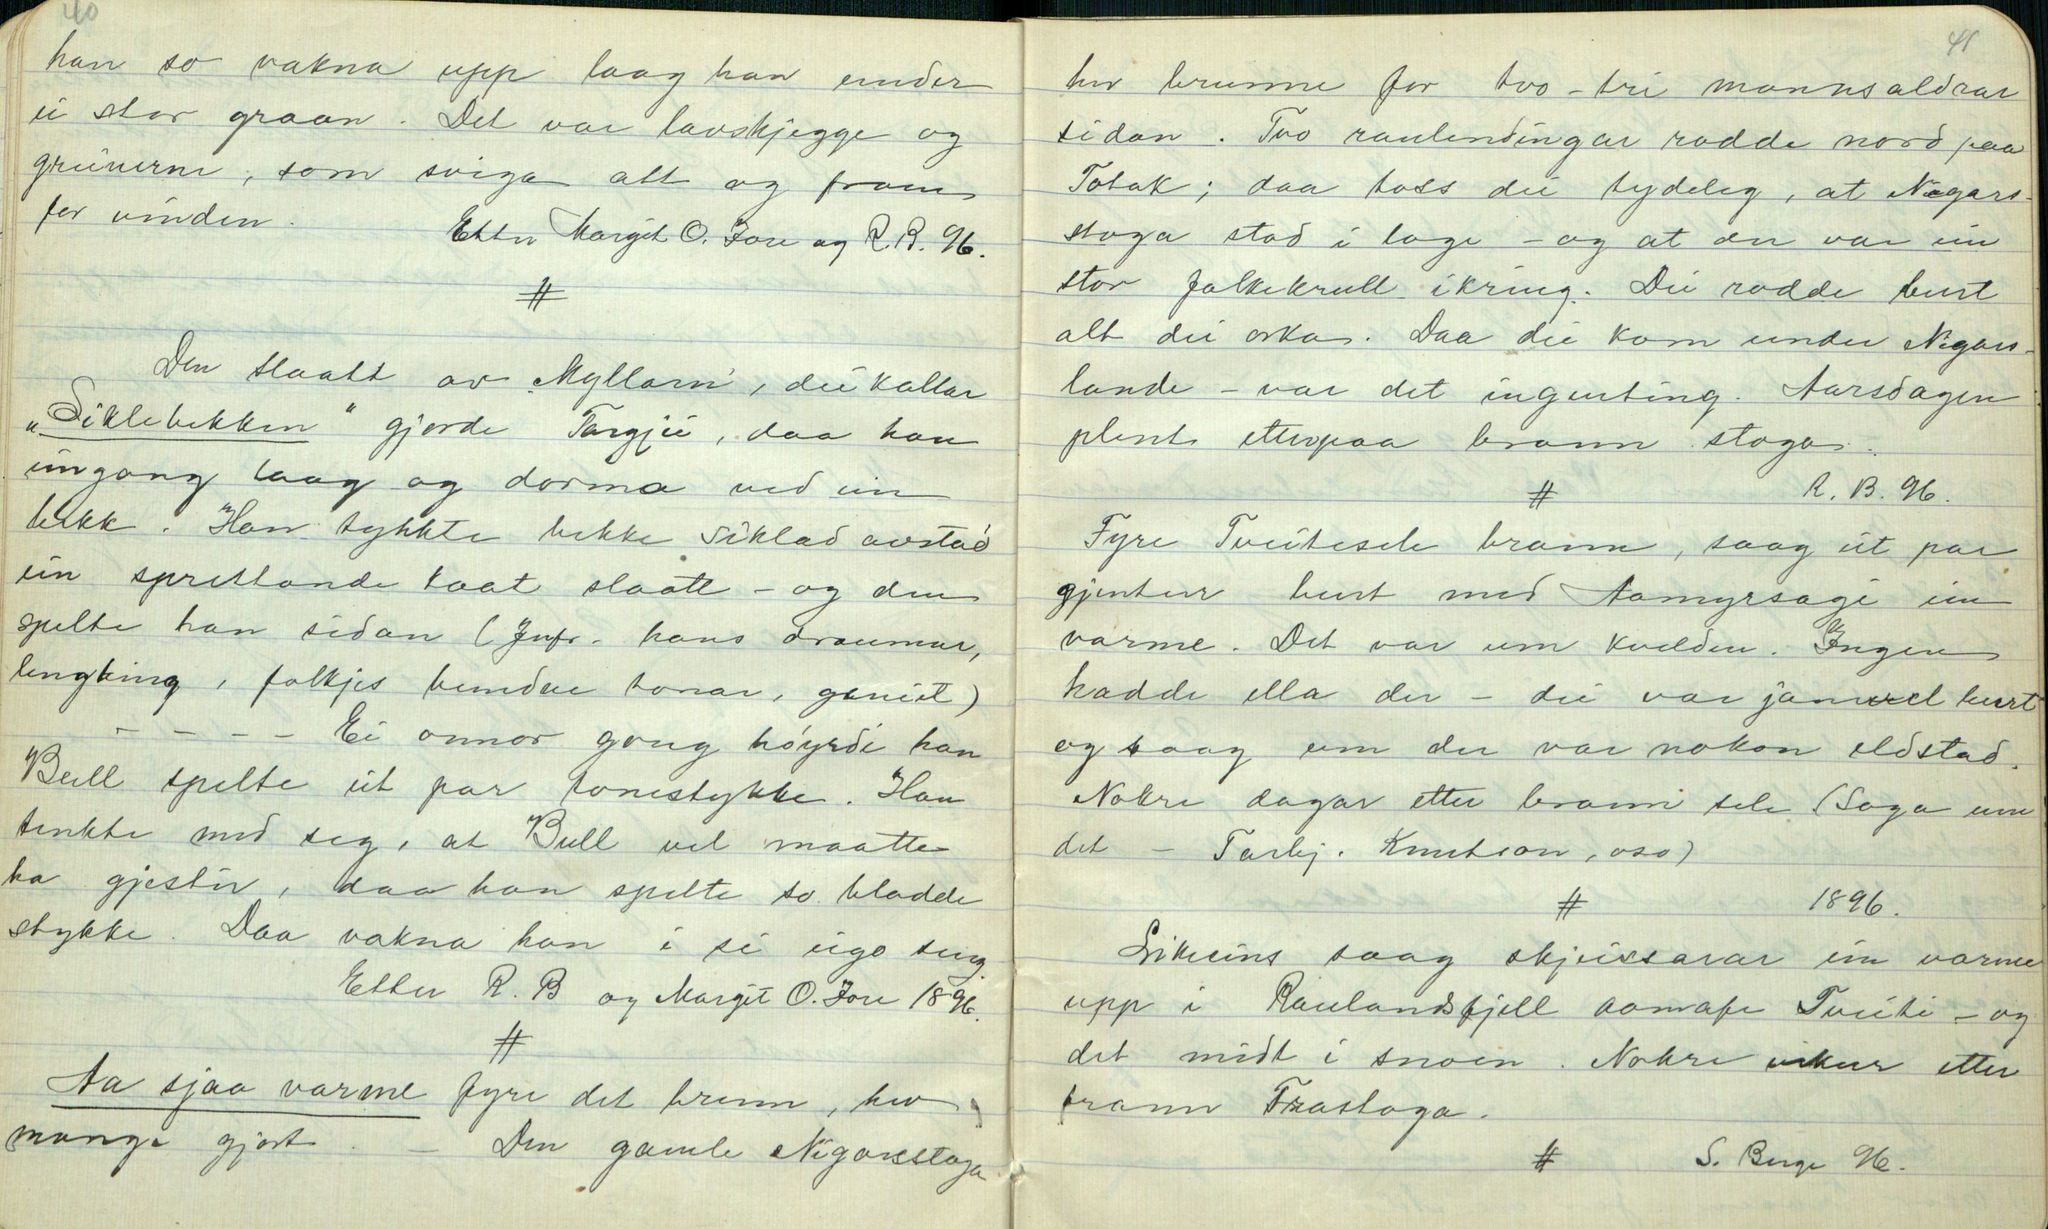 40
han so vakna upp laag han under
ei stor graan. Det var lavskjegge og
greinerne, som sviga att og fram
for vinden.
Etter Margit O. Fore og R. B. 96.
#
Den slaatt av Myllarn, dei kallar
"Siklebekken" gjorde Targjei, daa han
eingong laag og dorma ved ein
bekk. Han tykkte bekke siklad avstad
ein sprettande kaat slaatt - og den
spelte han sidan (Jmfr. hans draumar,
lengting, folkjes bundne tonar, geniet)
- - - - Ei onnor gong høyrde han
Bull spelte eit par tonestykke. Han
tenkte med seg, at Bull vel maatte
ha gjestir, daa han spelte so bladde
stykke. Daa vakna han i si eigo seng.
Etter R. B og Margit O. Fore 1896.
#
Aa sjaa varme fyre det brenn, hev
mange gjort. - Den gamle Nigarsstoga
41
hev brunne for tvo-tri mannsaldrar
sidan. Tvo raulendingar rodde nord paa
Totak; daa toss dei tydeleg, at Nigars-
stoga stod i loge - og at der var ein
stor folkekrull ikring. Dei rodde burt
alt dei orka. Daa dei kom under Nigars-
lande - var det ingenting. Aarsdagen
plent etterpaa brann stoga.
# R. B. 96.
Fyre Tveitesele brann, saag eit par
gjentur burt med Aamyrsagi ein
varme. Det var um kvelden. Ingen
hadde ella der - dei var jamvel burt
og saag um der var nokon eldstad.
Nokre dagar etter brann sele (Soga um
det - Tarbj. Knutson, oso)
# 1896.
Likeeins saag skjeissarar ein varme
upp i Raulandsfjell aamafe Tveiti - og
det midt i snoen. Nokre vikur etter
brann Trastoga.
# S. Berge 96.